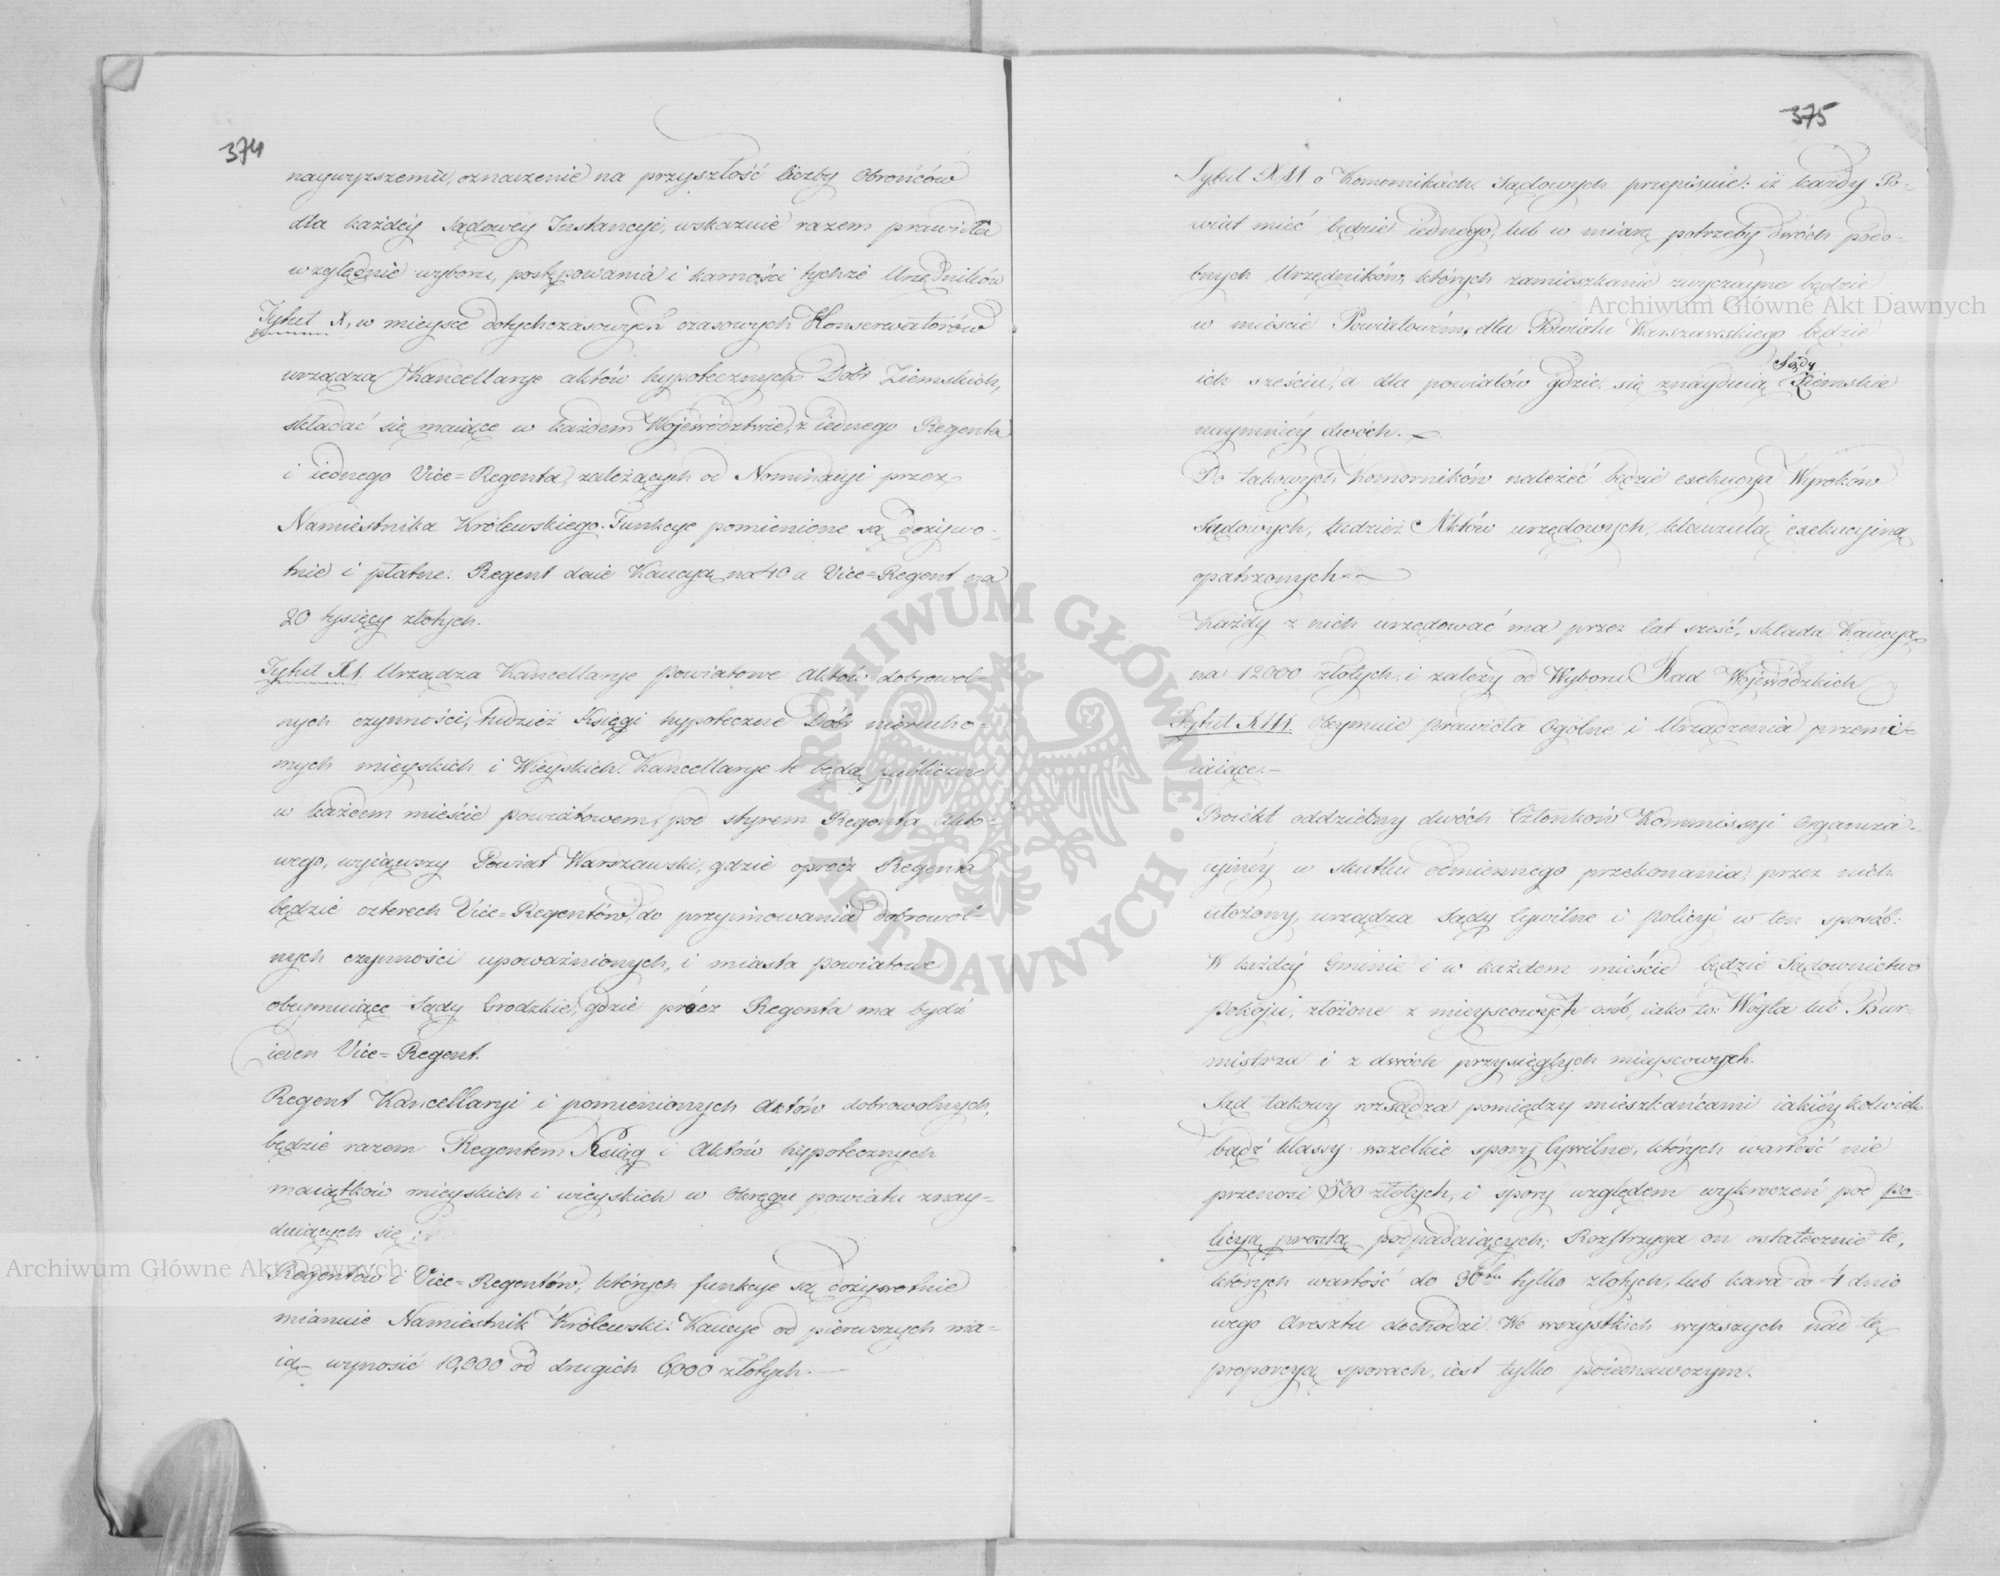 374
naywyższemu, oznaczenie na przyszłość liczby Obrońców
dla każdéy Sądowéy Instancyi, wskazuie razem prawidła
względnie wyboru, postępowania i karności tychże Urzędników
Tytuł X, w mieysce dotychczasowych czasowych Konserwatorów
urządza Kancellarye aktów hypotecznych Dóbr Ziemskich,
składać się maiące w każdem Województwie, z iednego Regenta
i iednego Vice=Regenta, zależących od Nominacyi przez
Namiestnika Królewskiego. Funkcye pomienione są dożywo-
tnie i płatne. Regent daie Kaucyą na 40 a Vice=Regent na
20 tysięcy złotych.
Tytuł XI. Urządza Kancellarye Powiatowe Aktów dobrowol-
nych czynności, tudzież Księgi hypoteczne Dóbr nierucho-
mych mieyskich i Wieyskich. Kancellarye te będą publiczne
w każdem mieście powiatowem, pod styrem Regenta Akto-
wego, wyiąwszy Powiat Warszawski, gdzie oprócz Regenta
będzie czterech Vice=Regentów, do przyimowania dobrowol-
nych czynności upoważnionych, i miasta powiatowe
obeymuiące Sądy Grodzkie, gdzie prócz Regenta ma bydź
ieden Vice=Regent.
Regent Kancellaryi i pomienionych Aktów dobrowolnych,
będzie razem Regentem Ksiąg i Aktów hypotecznych
maiątków mieyskich i wieyskich w Okręgu powiatu znay-
duiących się.
Regentów i Vice=Regentów, których funkcye są dożywotnie
mianuie Namiestnik Królewski. Kaucye od pierwszych ma-
ią wynosić 10,000 od drugich 6,000 złotych.
375
Tytuł XII o Komornikach Sądowych przepisuie: iż każdy Po-
wiat mieć będzie iednego, lub w miarę potrzeby dwóch podo-
bnych Urzędników, których zamieszkanie zwyczayne będzie
w mieście Powiatowém, dla Powiatu Warszawskiego będzie
ich sześciu, a dla powiatów gdzie się znayduią Sądy Ziemskie
naymniéy dwóch.
Do takowych Komorników należéć będzie exekucya Wyroków
Sądowych, tudzież Aktów urzędowych, klauzulą exekucyiną
opatrzonych
Każdy z nich urzędować ma przez lat sześć, składa Kaucyą
na 12000 złotych, i zależy od Wyboru Rad Wojewódzkich
Tytuł XIII. Obeymuie prawidła Ogólne i Urządzenia przemi-
iaiące.
Proiekt oddzielny dwóch Członków Kommissyi Organiza-
cyinéy w skutku odmiennego przekonania, przez nich
ułożony, urządza Sądy Cywilne i policyi w ten sposób:
W każdéy Gminie i w każdem mieście będzie Sądownictwo
Pokoju, złożone z mieyscowych osób, iako to: Wóyta lub Bur-
mistrza i z dwóch przysięgłych mieyscowych.
Sąd takowy rozsądza pomiędzy mieszkańcami iakiéykolwiek
bądź klassy wszelkie spory Cywilne, których wartość nie
przenosi 500 złotych, i spory względem wykroczeń pod po-
licyą prostą podpadaiących; Rozstrzyga on ostatecznie te,
których wartość do 30tu tylko złotych, lub kara do 4 dnio
wego Aresztu dochodzi. We wszystkich wyższych nad tę
proporcyą sporach, iest tylko poiednawczym.
Archiwum Główne Akt Dawnych
Archiwum Główne Akt Dawnych
ARCHIWUM GŁÓWNE AKT DAWNYCH